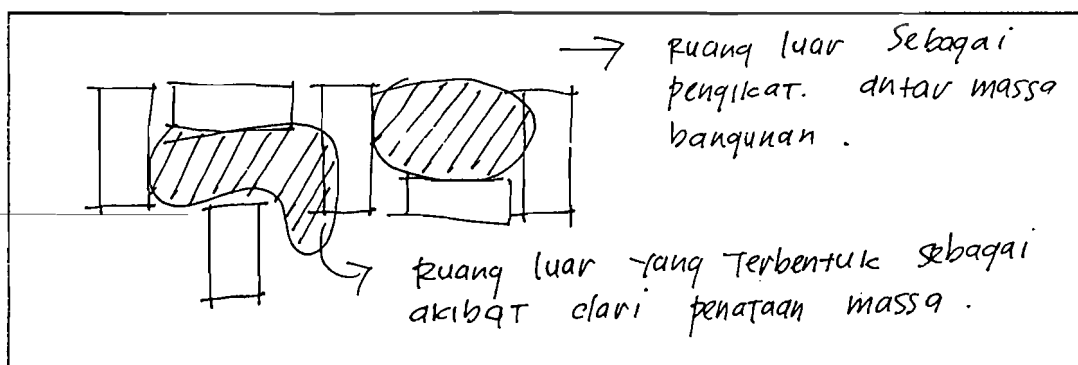 → Ruang luar Sebagai
pengikat. antar massa
bangunan.
→ Ruang luar yang Terbentuk sebagai
akibat dari penataan massa.